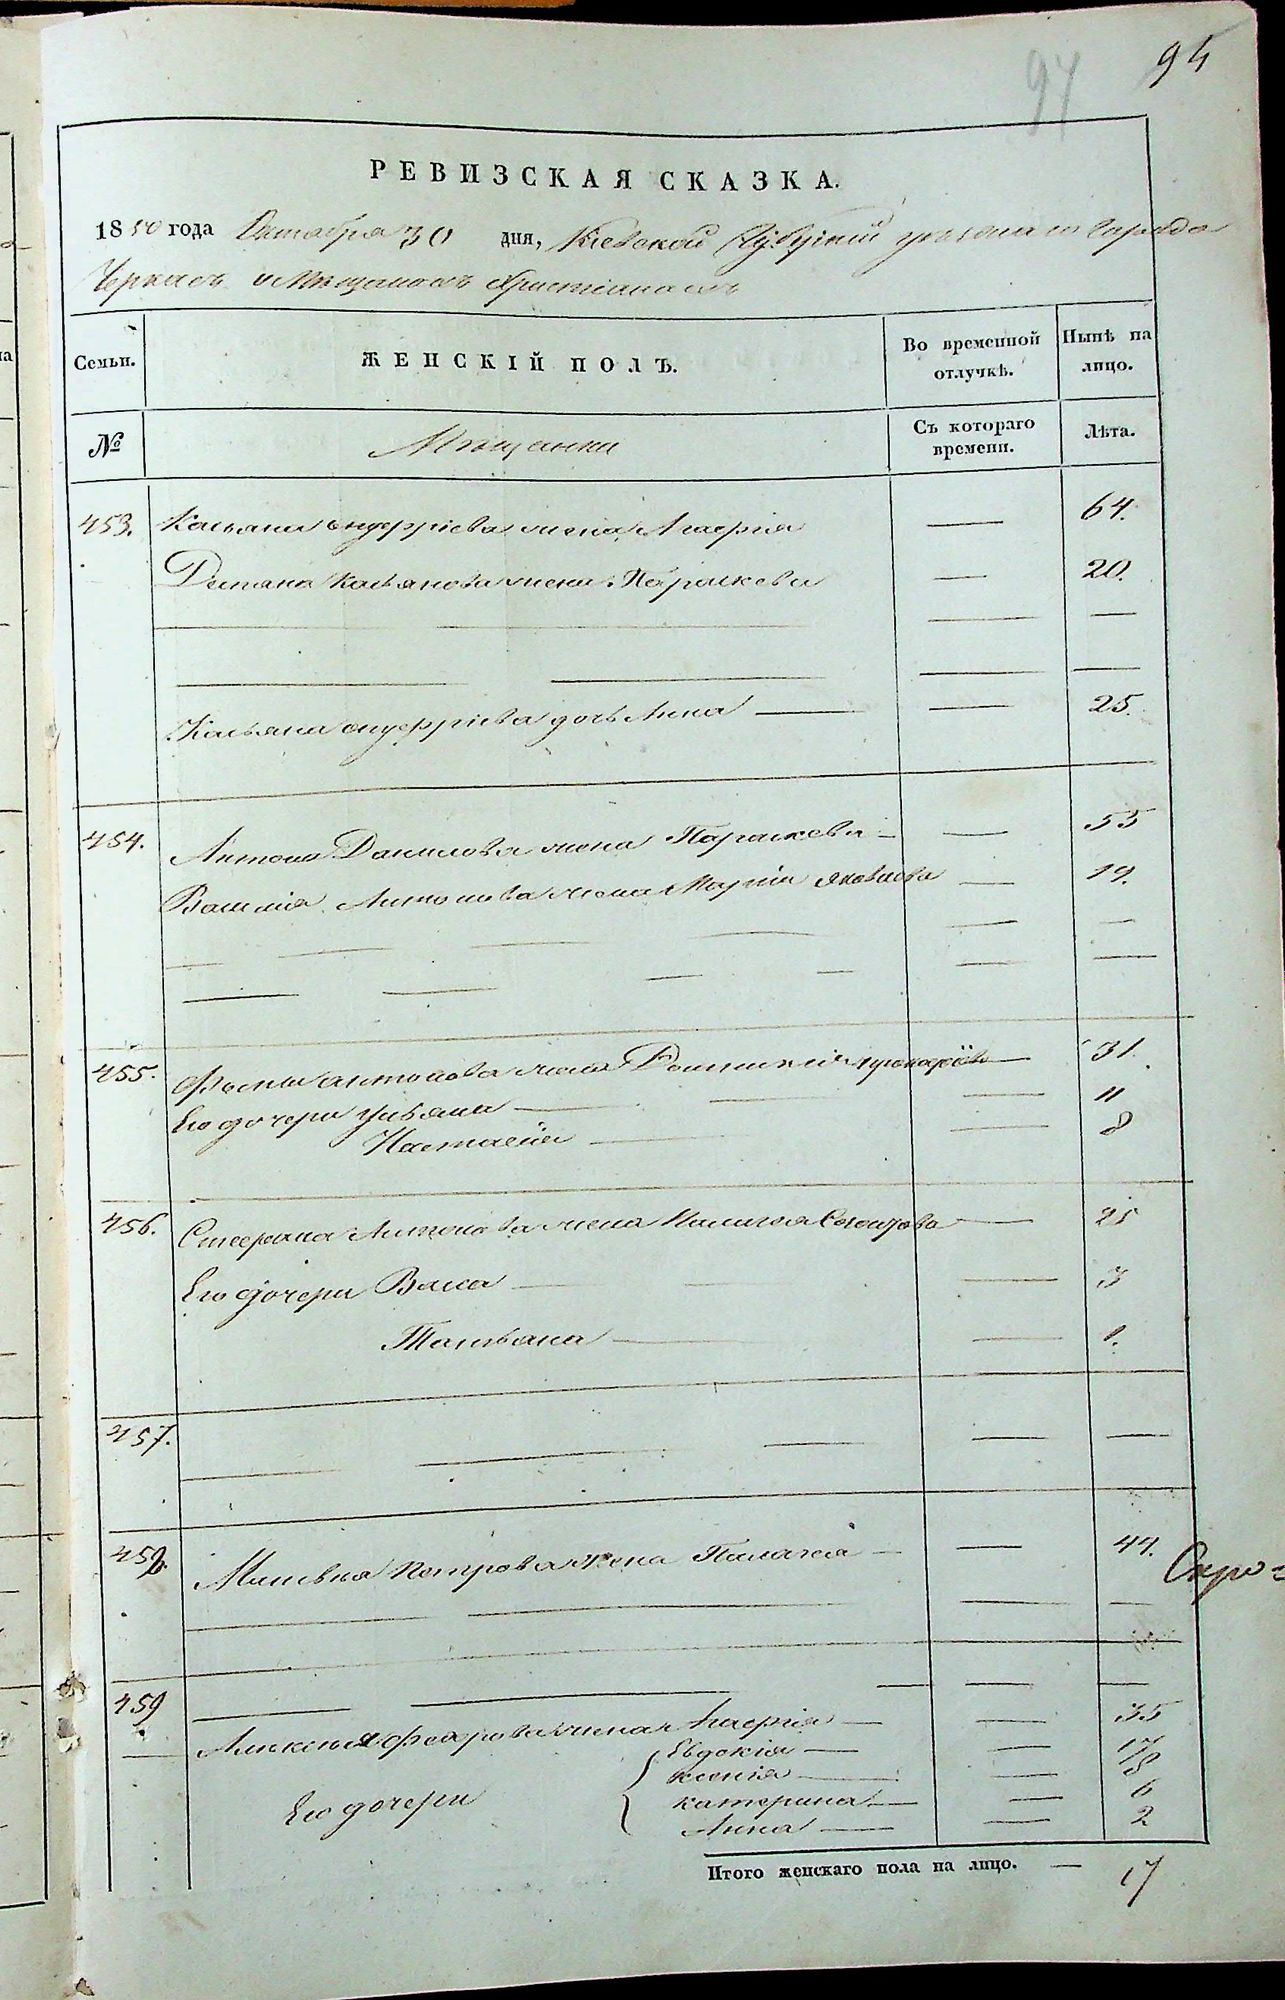 94
94
РЕВИЗСКАЯ СКАЗКА.
1850 года Октября 30 дня, Кіевской Губерніи города
Черкасъ о Мѣщанахъ Христіанахъ
Семьи.
ЖЕНСКІЙ ПОЛЪ.
Во временной отлучкѣ.
Нынѣ на лицо.
№
Мѣщанки
Съ котораго времени.
Лѣта.
453. Касьяна жена Агафія — 64.
Демяна Касьянова жена Параскева — 20.
Касьяна дочь Анна — 25.
454. Антона Данилова жена Параскева — 55
Василія Антонова жена Марія Яковлева — 19.
455. Фомы Антонова жена — 31.
Его дочери Ульяна — 11
Настасія — 8
456. Стефана Антонова жена Палагея — 25
Его дочери Васса — 3
Татьяна — 1.
457.
458. Матвея Петрова жена Палагея — 44.
Скро=
459
Алексея Федорова жена Агафія — 35
Его дочери
Евдокія — 17
Ксенія — 8
Катерина — 6
Анна — 2
Итого женскаго пола на лицо. — 17